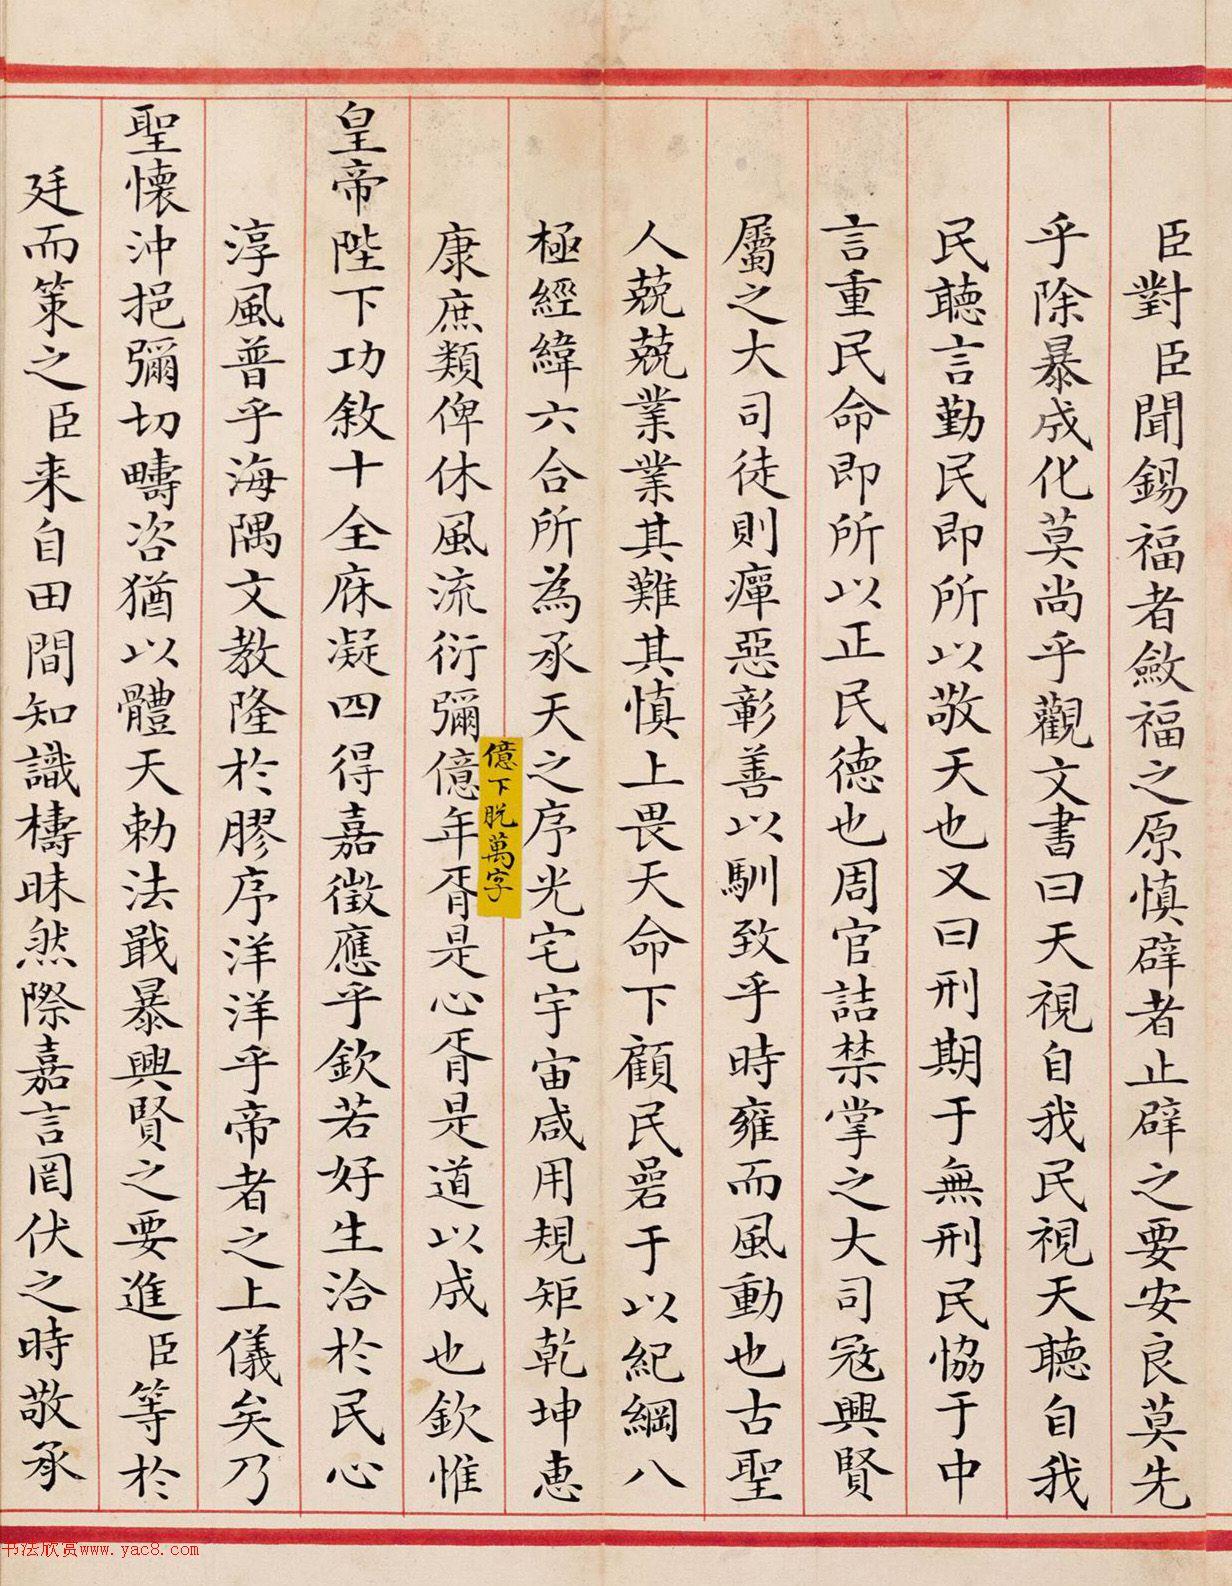 臣對臣聞錫福者斂福之原慎辟者止辟之要安良莫先
乎除暴成化莫尚乎觀文書曰天視自我民視天聽自我
民聽言勤民即所以敬天也又曰刑期于無刑民協于中
言重民命即所以正民德也周官詰禁掌之大司寇興賢
屬之大司徒則癉惡彰善以馴致乎時雍而風動也古聖
人兢兢業業其難其慎上畏天命下顧民碞于以紀綱八
極經緯六合所為承天之序光宅宇宙咸用規矩乾坤恵
億下脱萬字
康庶類俾休風流衍彌億年胥是心胥是道以成也欽惟
皇帝陛下功敘十全庥凝四得嘉徵應乎欽若好生洽於民心
淳風普乎海隅文教隆於膠序洋洋乎帝者之上儀矣乃
聖懷沖挹彌切疇咨猶以體天勅法戢暴興賢之要進臣等於
廷而策之臣来自田間知識檮昧然際嘉言罔伏之時敬承
书法欣赏www.yac8.com